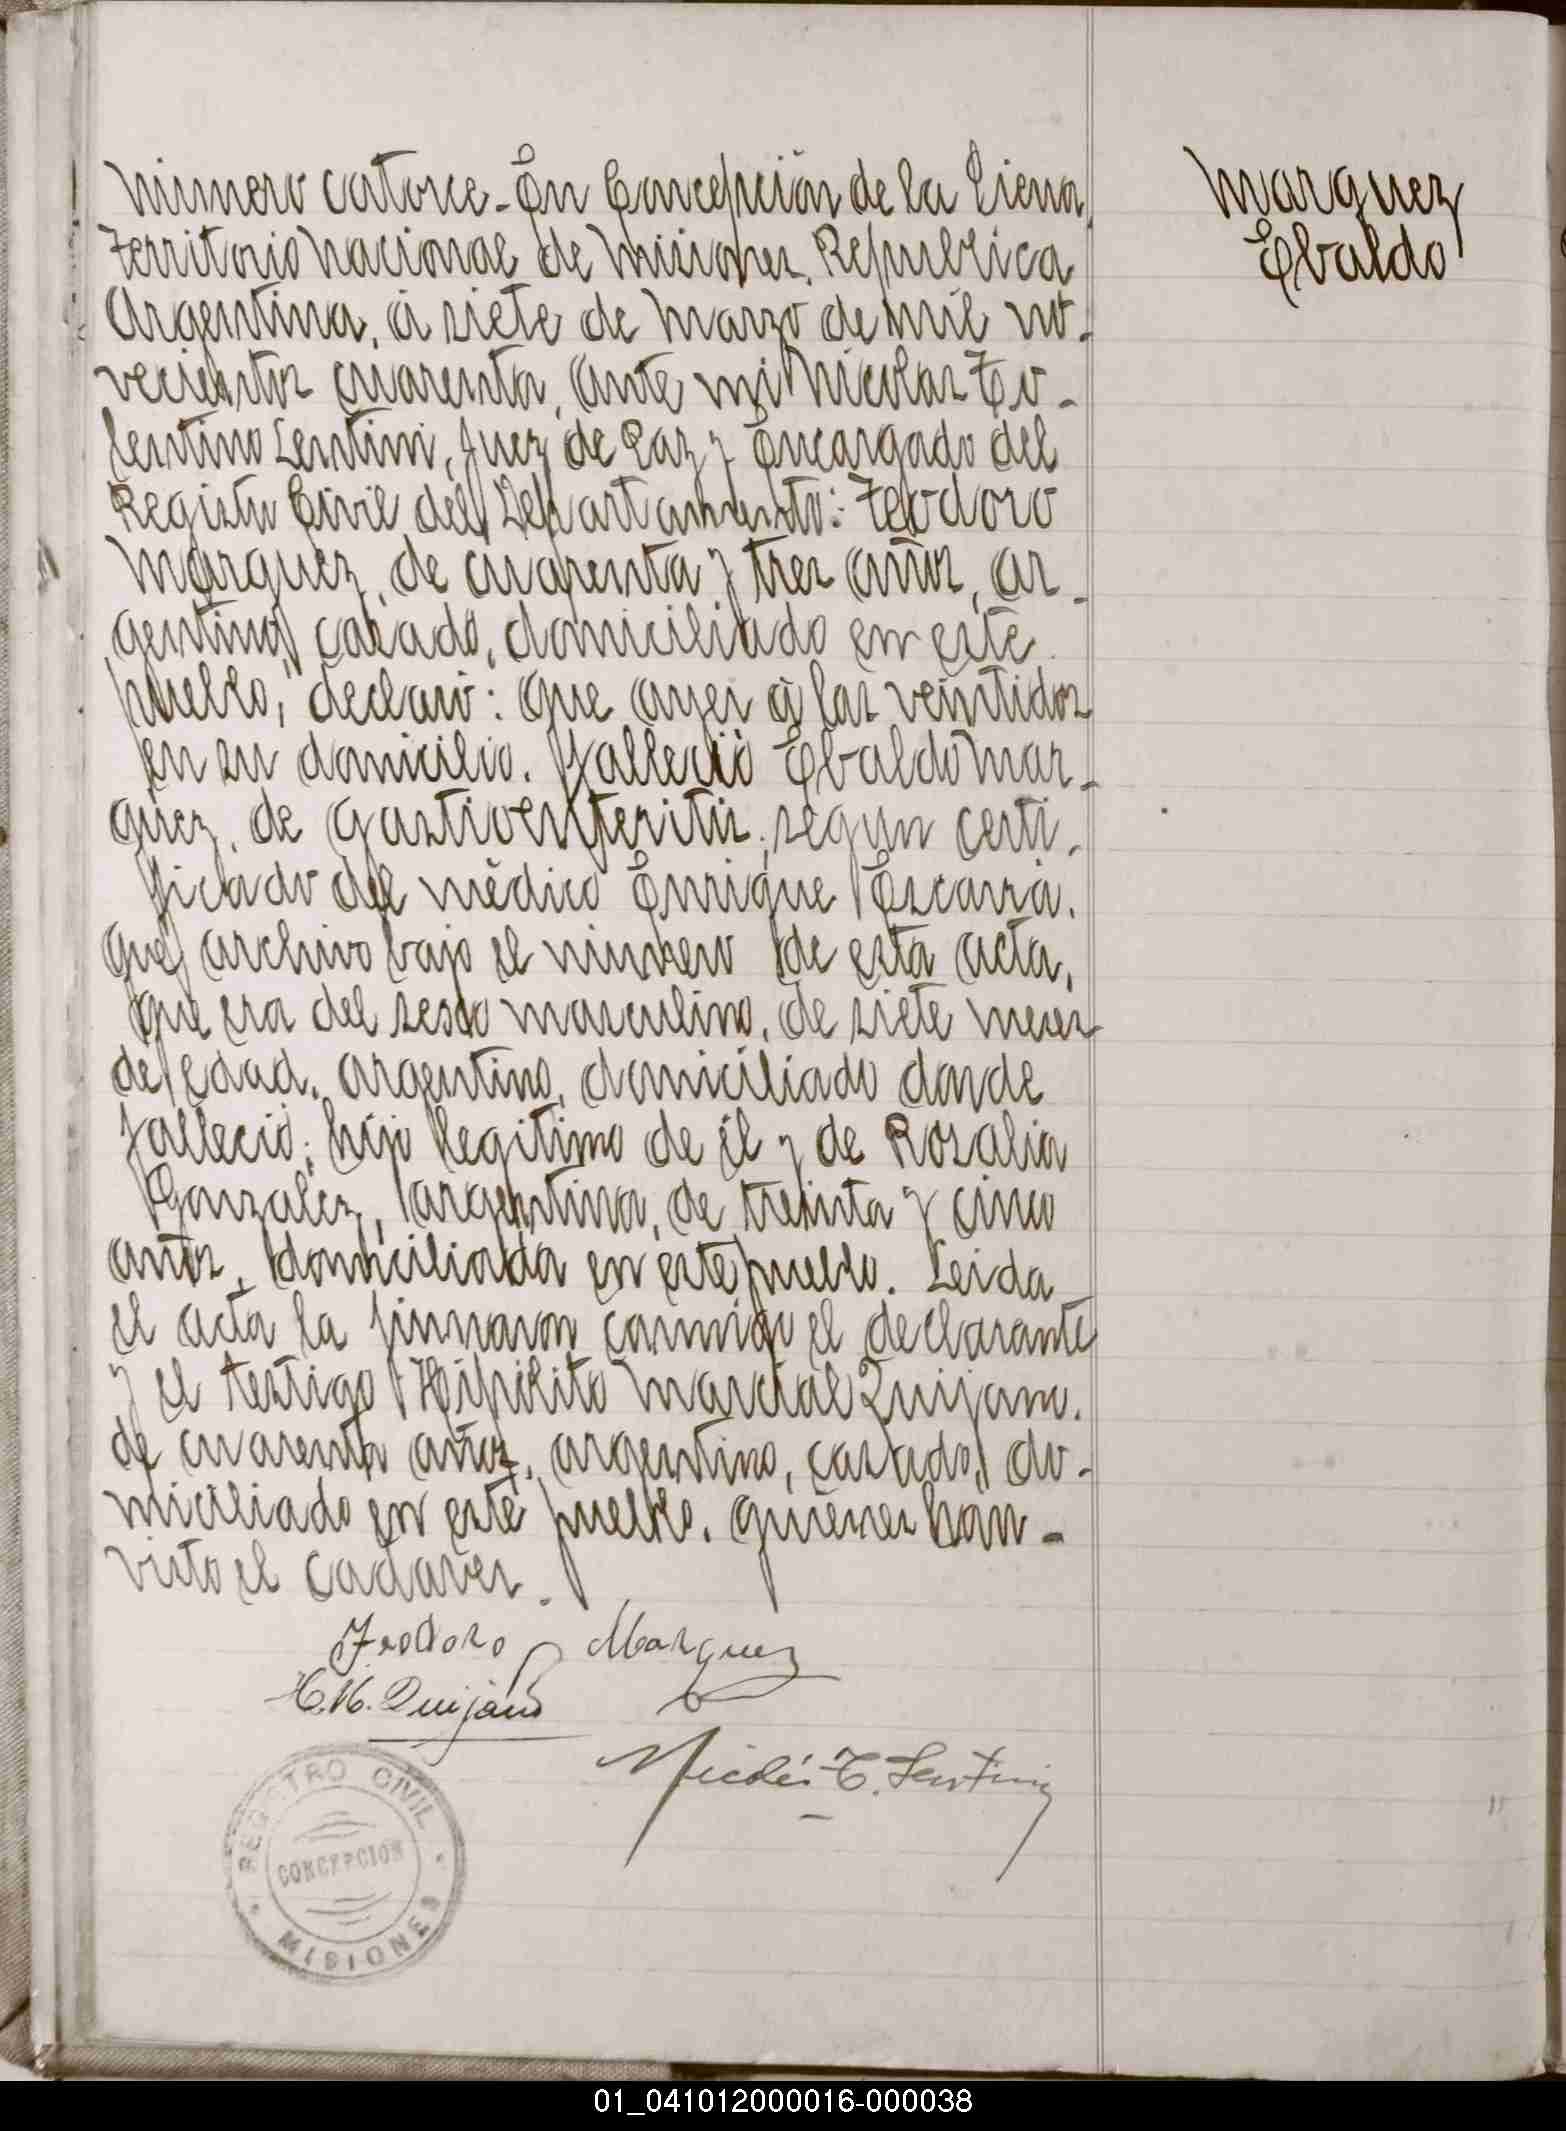 Número catorce.- En Concepción de la Sierra,
Territorio Nacional de Misiones, República
Argentina, á siete de Marzo de mil no-
vecientos cuarenta, ante mi Nicolas To-
lentino Lentini, Juez de Paz y Encargado del
Registro Civil del Departamento: Teodoro
Marquez, de cuarenta y tres años, ar-
gentino, casado, domiciliado en este
pueblo, declaró: Que ayer á las veintidos
en su domicilio, falleció Ebaldo Mar-
quez, de gastroenteritis, segun certi-
ficado del médico Enrique Escarrá,
que archivo bajo el número de esta acta,
que era del sexo masculino, de siete meses
de edad, argentino, domiciliado donde
falleció; hijo legitimo de él y de Rosalia
Gonzalez, argentina, de treinta y cinco
años, domiciliada en este pueblo. Leida
el acta la firmaron conmigo el declarante
y el testigo Hipólito Marcial Quijano,
de cuarenta años, argentino, casado, do-
miciliado en este pueblo, quienes han-
visto el cadáver.
Teodoro Marquez
H. M. Quijano
Nicolás T. Lentini
REGISTRO CIVIL
CONCEPCION
MISIONES
Marquez
Ebaldo
01_041012000016-000038